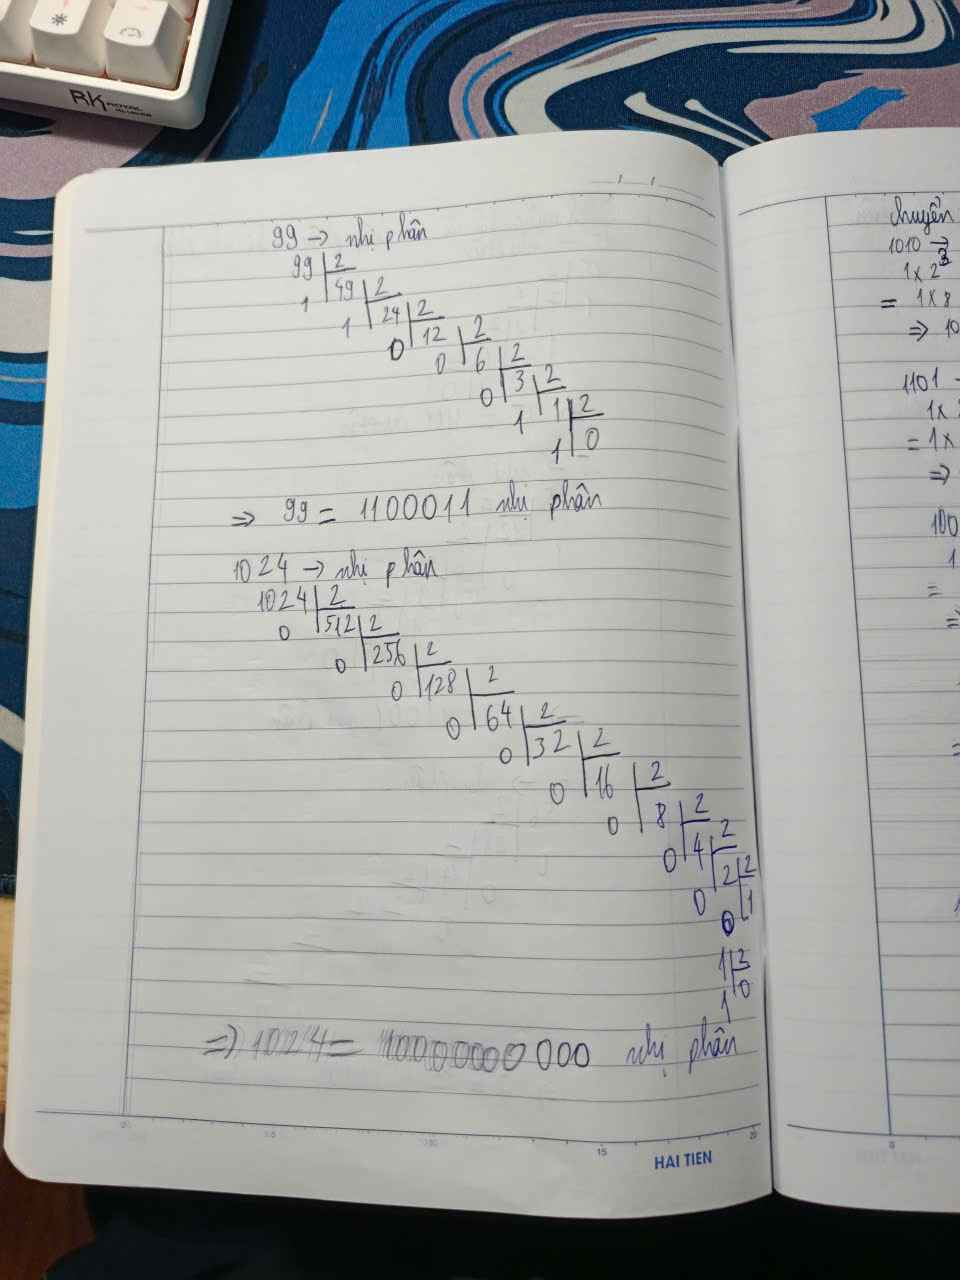 RK ROYAL
KLUDGE
99 → nhị phân
99 2
1 49 2
1 24 2
0 12 2
0 6 2
0 3 2
1 1 2
1 0
⇒ 99 = 1100011 nhị phân
1024 → nhị phân
1024 2
0 512 2
0 256 2
0 128 2
0 64 2
0 32 2
0 16 2
0 8 2
0 4 2
0 2 2
0 1
1 2
1 0
⇒ 1024 = 10000000000 nhị phân
15
20
HAI TIEN
chuyển
1010 →
1 x 2³
= 1 x 8
⇒ 10
1101
1 x
= 1 x
⇒
100
1
=
⇒
0